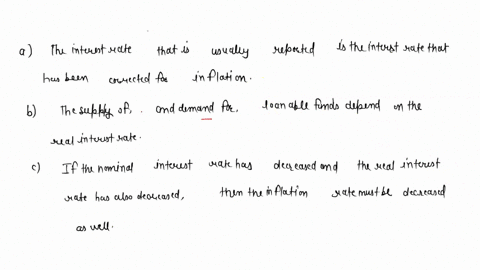 a) The interest rate that is usually reported is the interst rate that
has been corrected for inflation.
b) The supply of, . and demand for, loanable funds depend on the
real interest rate.
c) If the nominal interest rate has decreased and the real interest
rate has also decreased, then the inflation rate must be decreased
as well.